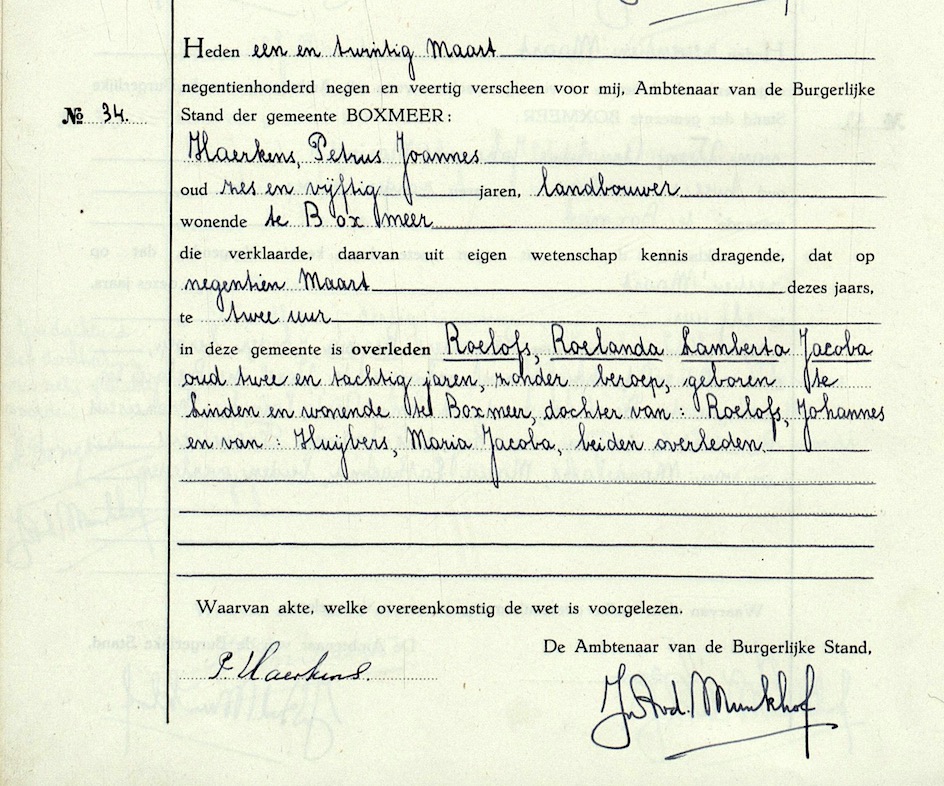 Heden een en twintig Maart
negentienhonderd negen en veertig verscheen voor mij, Ambtenaar van de Burgerlijke
No 34. Stand der gemeente BOXMEER:
Haerkens, Petrus Joannes
oud zes en vijftig jaren, landbouwer
wonende te Boxmeer
die verklaarde, daarvan uit eigen wetenschap kennis dragende, dat op
negentien Maart dezes jaars,
te twee uur
in deze gemeente is overleden Roelofs, Roelanda Lamberta Jacoba
oud twee en tachtig jaren, zonder beroep, geboren te
Linden en wonende te Boxmeer, dochter van: Roelofs, Johannes
en van: Huijbers, Maria Jacoba, beiden overleden.
Waarvan akte, welke overeenkomstig de wet is voorgelezen.
De Ambtenaar van de Burgerlijke Stand,
P. Haerkens.